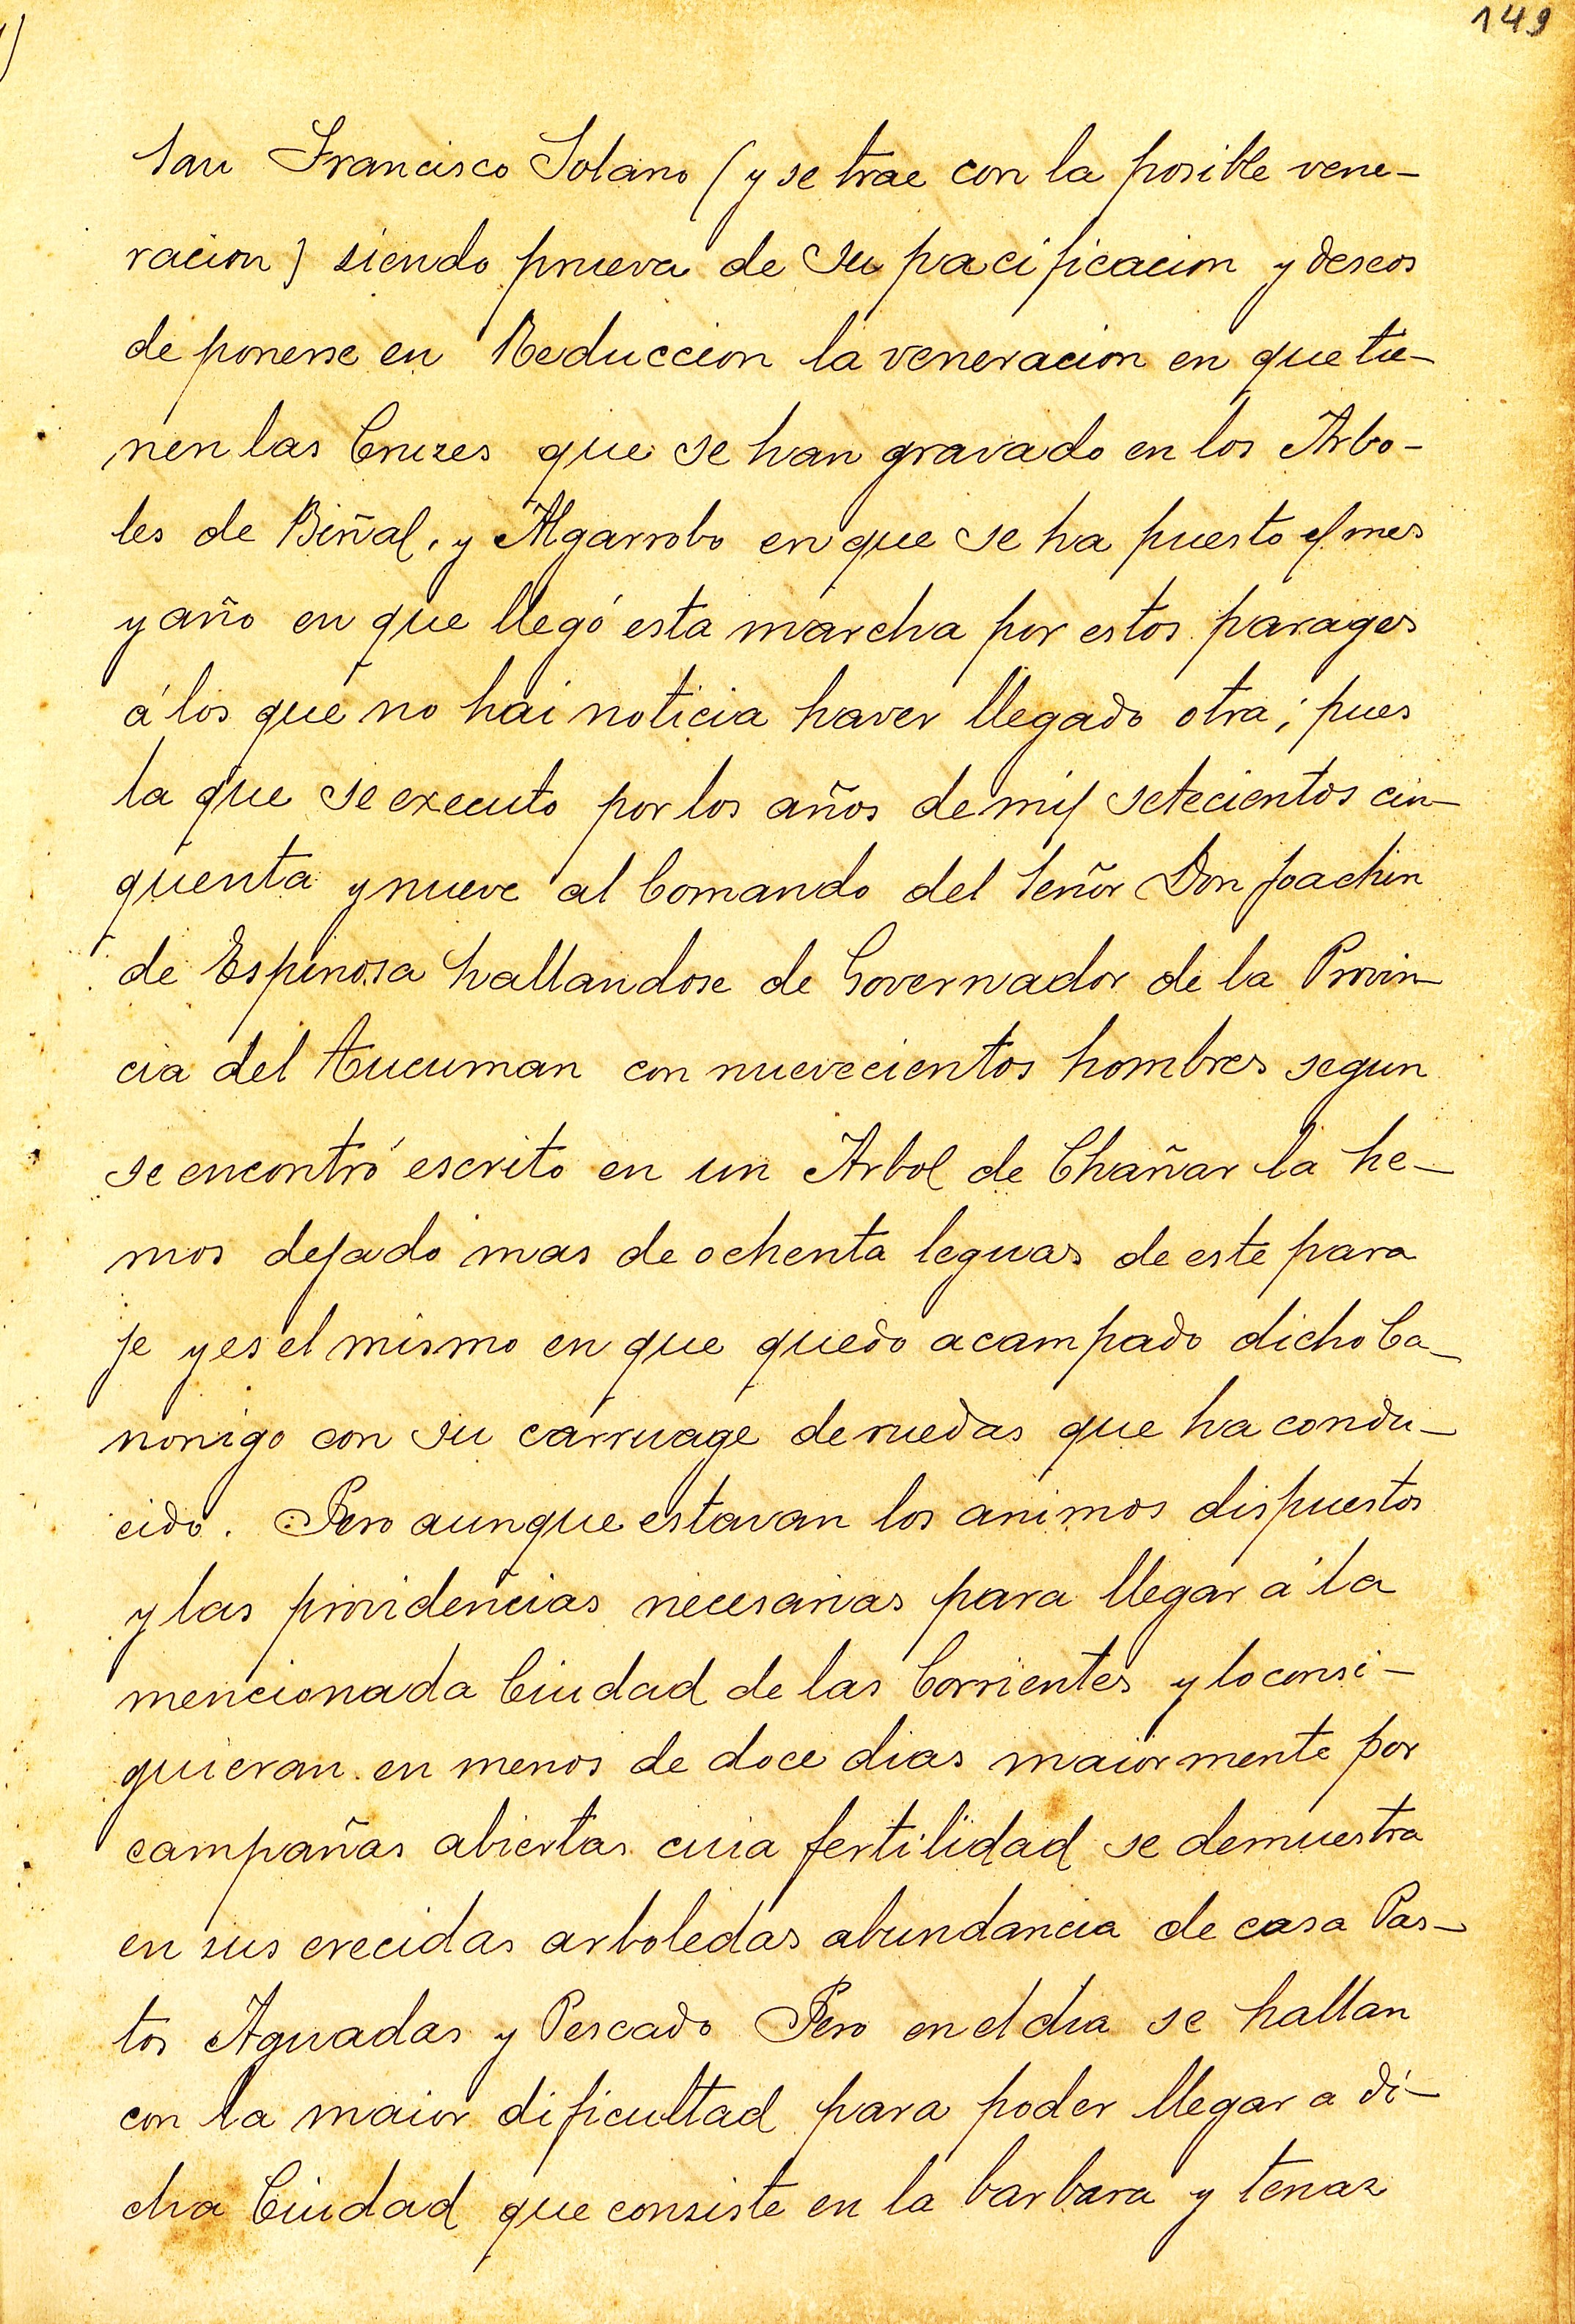 149
San Francisco Solano (y se trae con la posible vene-
racion) siendo prueva de su pacificacion y deseos
de ponerse en Reduccion la veneracion en que tie-
nen las Cruzes que se han gravado en los Arbo-
les de Biñal, y Algarrobo en que se ha puesto el mes
y año en que llegó esta marcha por estos parages
á los que no hai noticia haver llegado otra; pues
la que se executo por los años de mil setecientos cin-
quenta y nueve al Comando del Señor Don Joachin
de Espinosa hallandose de Governador de la Provin-
cia del tucuman con nuevecientos hombres segun
se encontró escrito en un Arbol de Chañar la he-
mos dejado mas de ochenta leguas de este para
je y es el mismo en que quedo acampado dicho Ca-
nonigo con su carruage de ruedas que ha condu-
cido. Pero aunque estavan los animos dispuestos
y las providencias necesarias para llegar á la
mencionada Ciudad de las Corrientes y lo consi-
guieran en menos de doce dias maiormente por
campañas abiertas cuia fertilidad se demuestra
en sus crecidas arboledas abundancia de casa Pas-
tos Aguadas y Pescado Pero en el dia se hallan
con la maior dificultad para poder llegar a di-
cha Ciudad que consiste en la barbara y tenaz